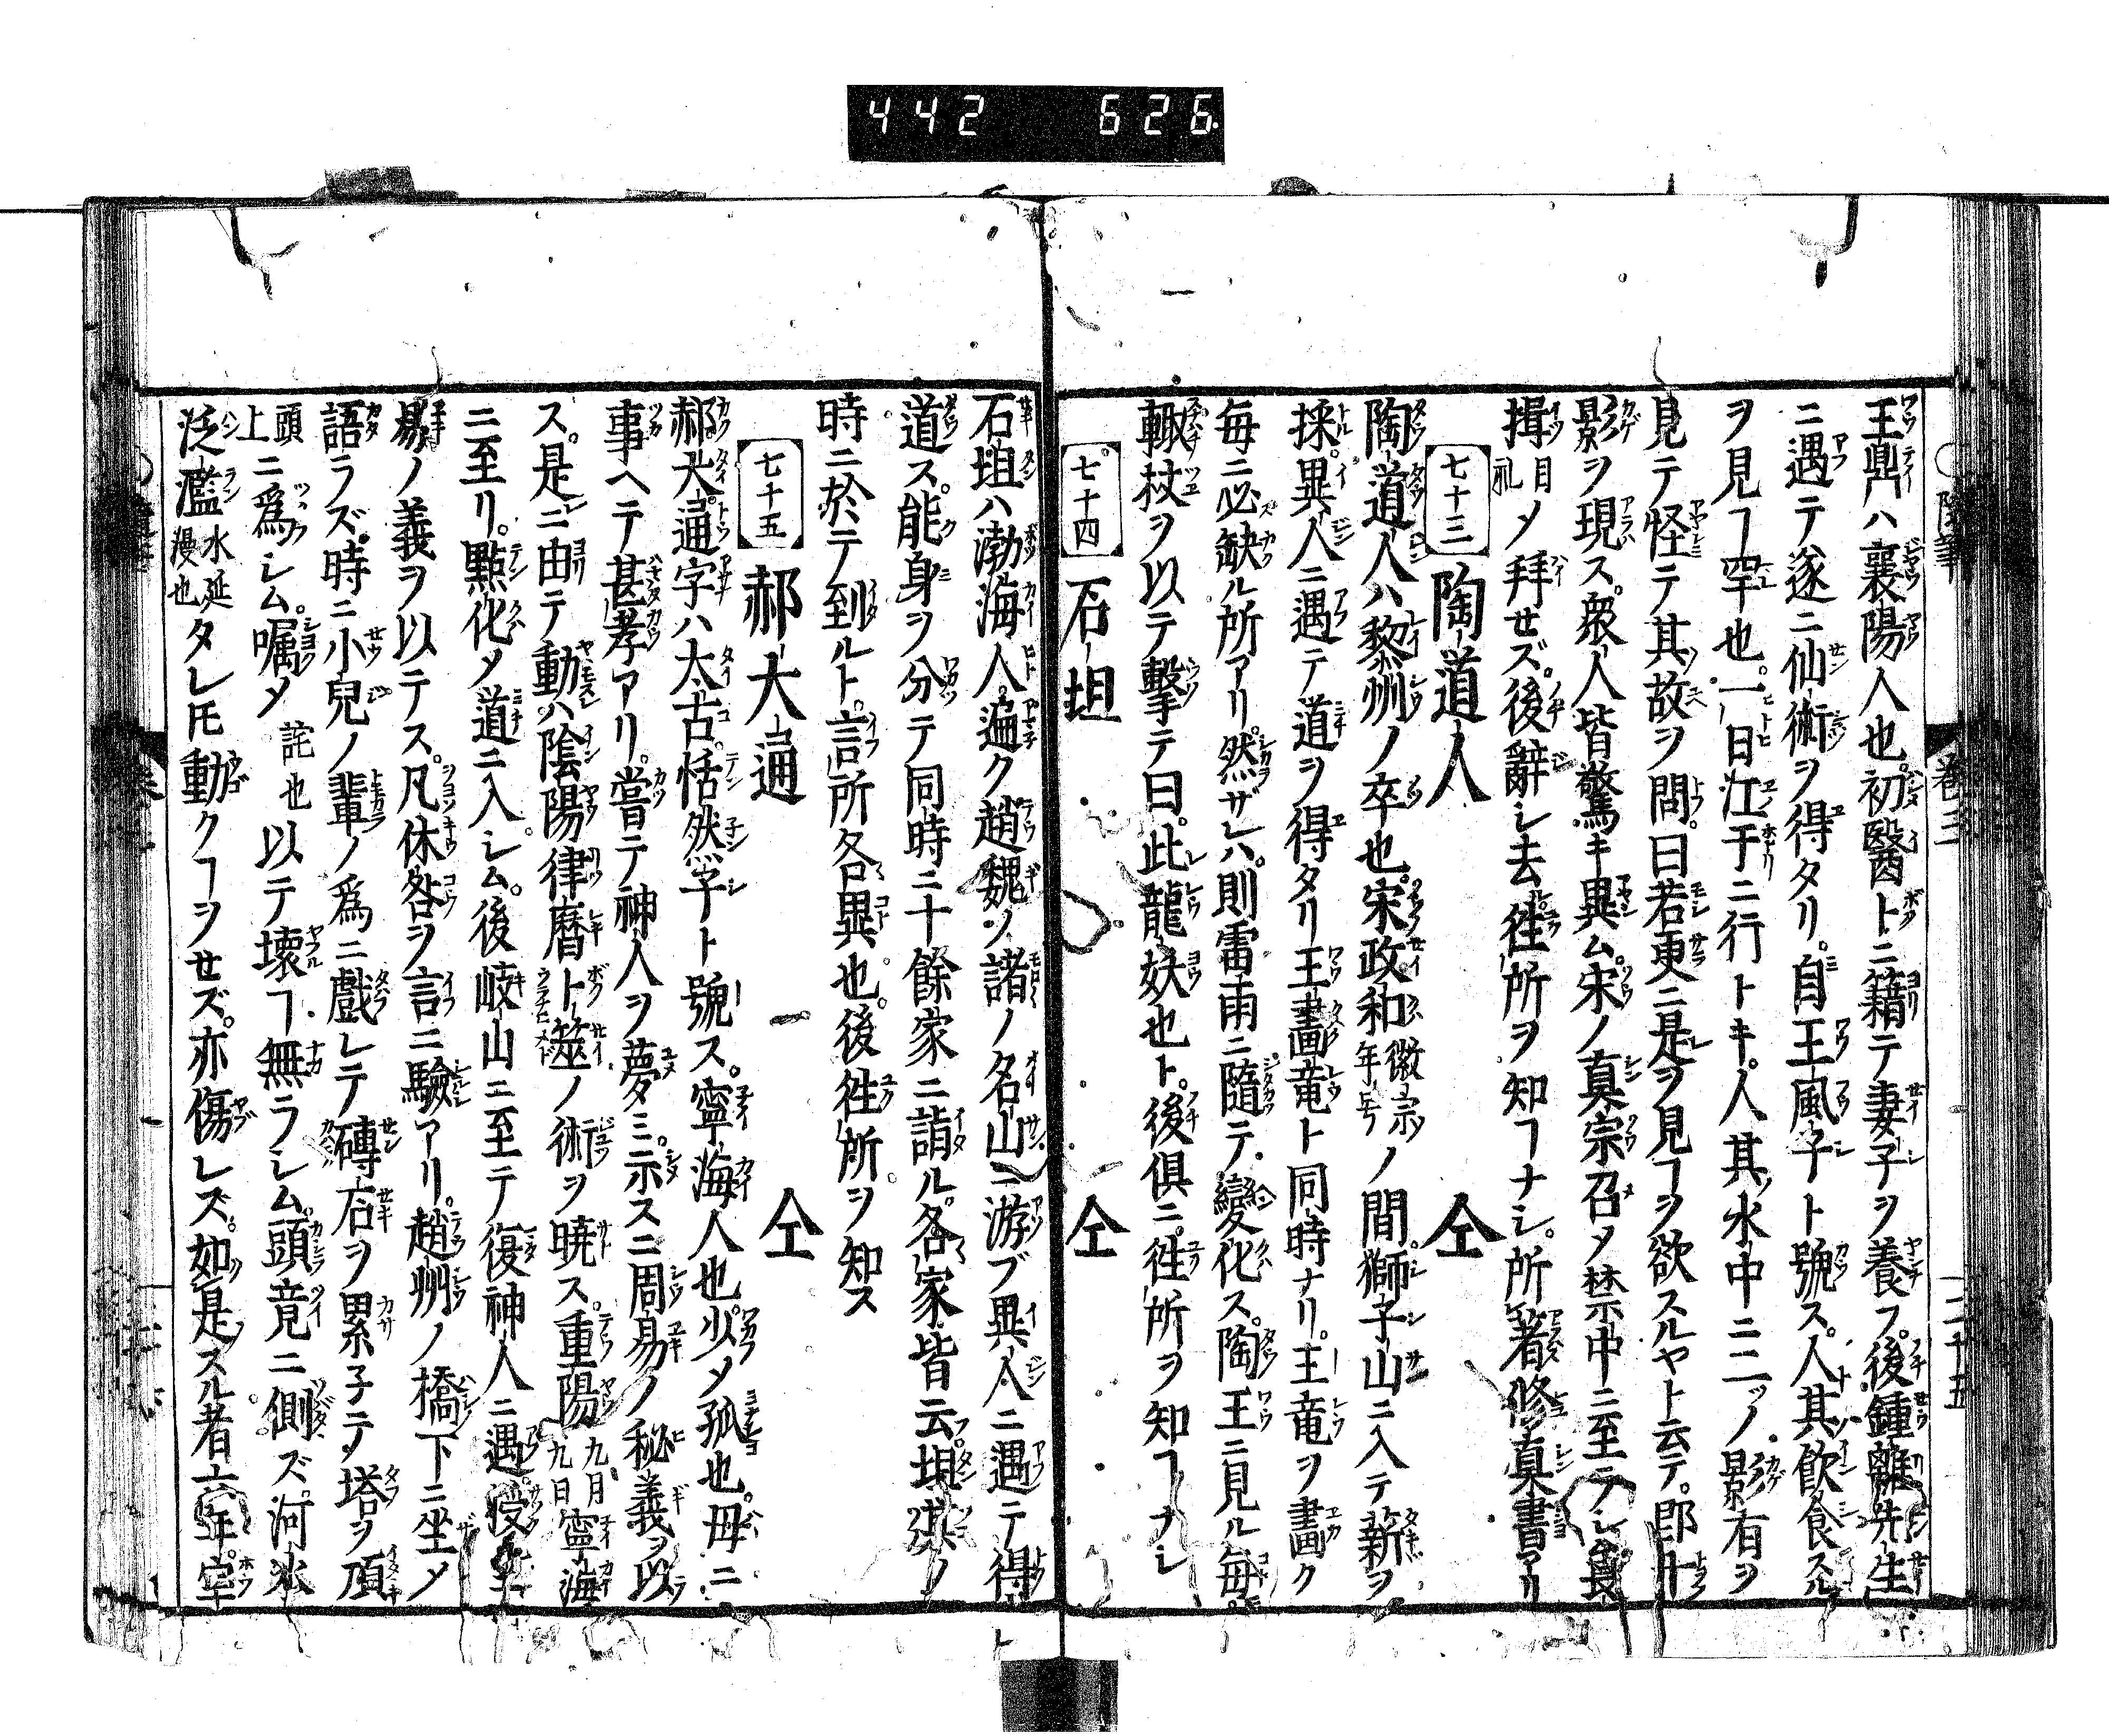 442 626
王鼎ハ襄陽人也。初醫卜ニ籍テ妻子ヲ養フ。後鍾離先生
ニ遇テ遂ニ仙術ヲ得タリ。自王風子ト號ス。人其飲食スル
ヲ見ヿ罕也。一日江于ニ行トキ。人其水中ニ二ツノ影有ヲ
見テ怪テ其故ヲ問。曰若更ニ是ヲ見ヿヲ欲スルヤト云テ。即廾
影ヲ現ス。衆人皆驚キ異ム。宋ノ真宗召メ禁中ニ至テ
揖目礼メ拜セズ。後辭シ去徃所ヲ知ヿナシ。所著修真書アリ
七十三 陶道人 仝
陶道人ハ黎州ノ卒也。宋政和徽宗ノ年号ノ間獅子山ニ入テ薪ヲ
採異人ニ遇テ道ヲ得タリ王畫竜ト同時ナリ。王竜ヲ畫ク
毎ニ必缺ル所アリ。然ザレハ。則雷雨ニ隨テ變化ス。陶王ニ見ル毎。
輙杖ヲ以テ擊テ曰。此龍妖也ト。後俱ニ徃所ヲ知ヿナシ
七十四 石坦 仝
巻三
二十五
石坦ハ渤海人。遍ク趙魏ノ諸ノ名山ニ游ブ異人ニ遇テ得
道ス。能身ヲ分テ同時ニ十餘家ニ詣ル。各家皆云坦其ノ
時ニ於テ到ルト。言所各異也。後徃所ヲ知ス
七十五 郝大通 仝
郝大通字ハ太古。恬然子ト號ス。寧海人也少メ孤也。母ニ
事ヘテ甚孝アリ。嘗テ神人ヲ夢ミ。示スニ周易ノ秘義ヲ以
ス。是ニ由テ動ハ陰陽律曆卜筮ノ術ヲ曉ス。重陽九月九日寧海
ニ至リ。點化メ道ニ入シム。後岐山ニ至テ復神人ニ遇。授
易ノ義ヲ以テス。凡休咎ヲ言ニ驗アリ。趙州ノ橋下ニ坐メ
語ラズ。時ニ小兒ノ輩ノ爲ニ戲レテ磚石ヲ累子テ塔ヲ頂
頭上ニ爲シム。囑メ詫也以テ壞ヿ無ラシム。頭竟ニ側ズ。河水
泛濫水延漫也タレ𪜈動クヿヲセズ。亦傷レズ。如是スル者六年。